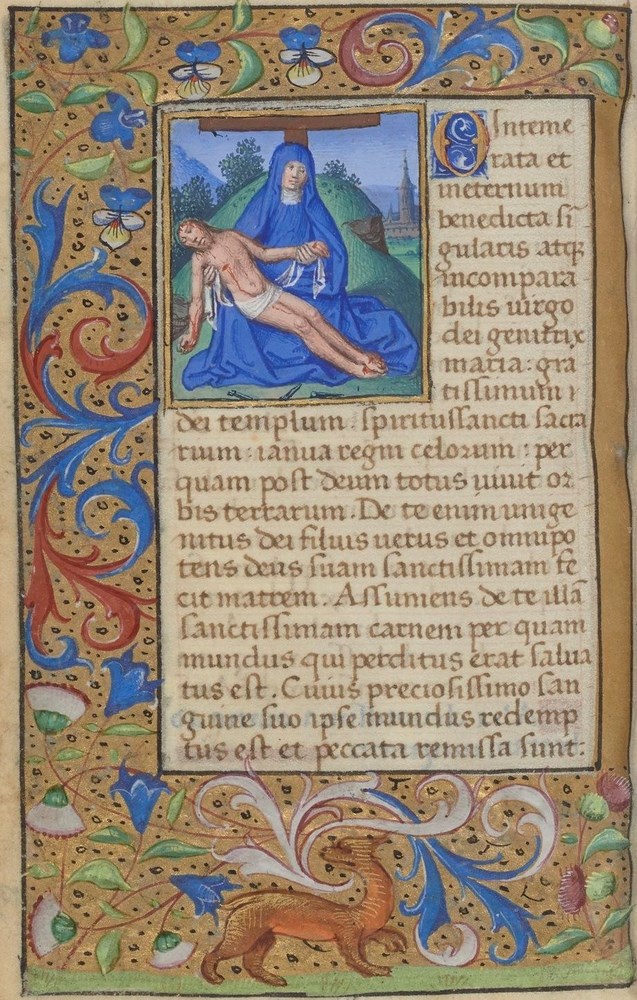 O Inteme
rata et
ineternum
benedicta si
gularis atq;
incompara
bilis uirgo
dei genitrix
maria: gra
tissimum
dei templum: spiritussancti sacra
rium: ianua regni celorum: per
quam post deum totus uiuit or
bis terrarum. De te enim unige
nitus dei filius uerus et omnipo
tens deus suam sanctissimam fe
cit matrem. Assumens de te illā
sanctissimam carnem per quam
mundus qui perditus erat salua
tus est. Cuius preciosissimo san
guine suo ipse mundus redemp
tus est et peccata remissa sunt: